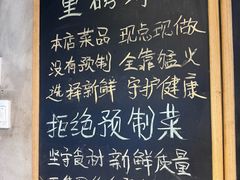 本店菜品 现点现做
没有预制 全靠猛火
选择新鲜 守护健康
拒绝预制菜
坚守食材 新鲜质量